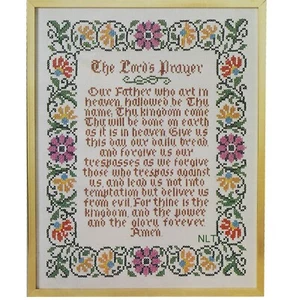 The Lord's Prayer
Our Father who art in
heaven, hallowed be Thy
name, Thy kingdom come
Thy will be done on earth
as it is in heaven Give us
this day our daily bread
and forgive us our
trespasses as we forgive
those who trespass against
us, and lead us not into
temptation but deliver us
from evil For thine is the
kingdom, and the power
and the glory, forever
Amen.
NLT